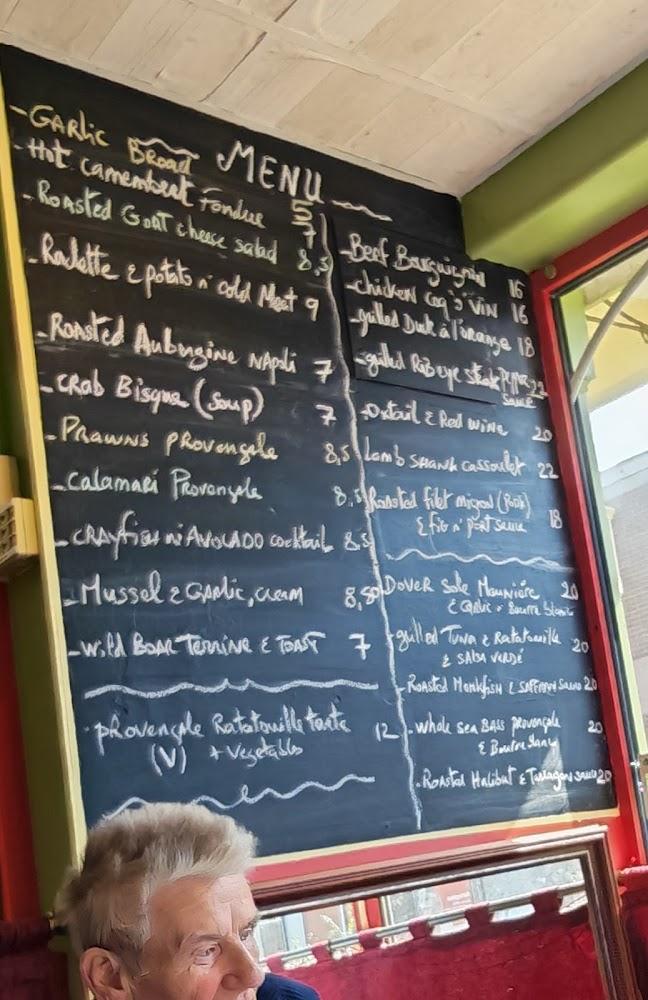 MENU
-Garlic Bread 5
-Hot camembert Fondue 7
-Roasted Goat cheese salad 8,5
-Raclette & potato n' cold Meat 9
-Roasted Aubergine Napoli 7
-Crab Bisque (soup) 7
-Prawns Provençale 8,5
-Calamari Provençale 8,5
-Crayfish n' Avocado cocktail 8,5
-Mussel & Garlic, cream 8,50
-Wild Boar Terrine & Toast 7
-Provençale Ratatouille tarte 12
(V) + Vegetables
-Beef Bourguignon 16
-chicken coq 'o' Vin 16
-grilled Duck à l'orange 18
-grilled Rib eye steak Pepper 22
sauce
-Oxtail & Red wine 20
Lamb shank cassoulet 22
Roasted filet mignon (Pork) 18
& fig n' port sauce
Dover Sole Meunière 20
& Garlic
-grilled Tuna & Ratatouille 20
& Salsa Verdé
-Roasted Monkfish & Saffron sauce 20
-Whole sea Bass provençale 20
& Beurre blanc
-Roasted Halibut & Tarragon sauce 20